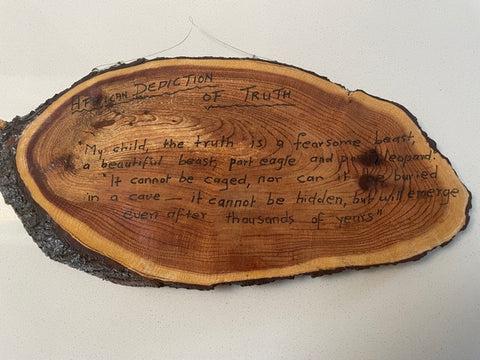 AFRICAN DEDICTION
OF TRUTH
"My child, the truth is a fearsome beast,
a beautiful beast, part eagle and part leopard.
"It cannot be caged, nor can it be buried
in a cave — it cannot be hidden, but will emerge
even after thousands of years"